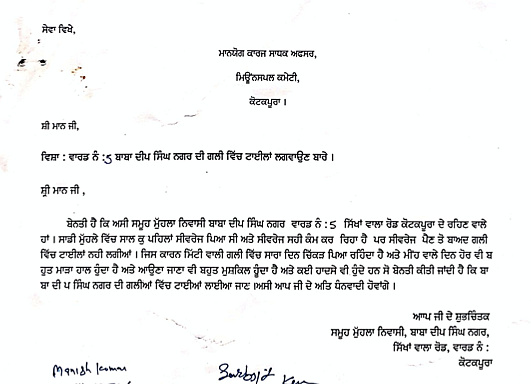 ਸੇਵਾ ਵਿਖੇ,
ਮਾਨਯੋਗ ਕਾਰਜ ਸਾਧਕ ਅਫਸਰ,
ਮਿਊਂਨਸਪਲ ਕਮੇਟੀ,
ਕੋਟਕਪੂਰਾ ।
ਸ਼੍ਰੀ ਮਾਨ ਜੀ,
ਵਿਸ਼ਾ : ਵਾਰਡ ਨੰ :5 ਬਾਬਾ ਦੀਪ ਸਿੰਘ ਨਗਰ ਦੀ ਗਲੀ ਵਿੱਚ ਟਾਈਲਾਂ ਲਗਵਾਉਣ ਬਾਰੇ ।
ਸ਼੍ਰੀ ਮਾਨ ਜੀ ,
ਬੇਨਤੀ ਹੈ ਕਿ ਅਸੀ ਸਮੂਹ ਮੁੱਹਲਾ ਨਿਵਾਸੀ ਬਾਬਾ ਦੀਪ ਸਿੰਘ ਨਗਰ ਵਾਰਡ ਨੰ : 5 ਸਿੱਖਾਂ ਵਾਲਾ ਰੋਡ ਕੋਟਕਪੂਰਾ ਦੇ ਰਹਿਣ ਵਾਲੇ
ਹਾਂ । ਸਾਡੀ ਮੁੱਹਲੇ ਵਿੱਚ ਸਾਲ ਕੁ ਪਹਿਲਾਂ ਸੀਵਰੇਜ ਪਿਆ ਸੀ ਅਤੇ ਸੀਵਰੇਜ ਸਹੀ ਕੰਮ ਕਰ ਰਿਹਾ ਹੈ ਪਰ ਸੀਵਰੇਜ ਪੈਣ ਤੋ ਬਾਅਦ ਗਲੀ
ਵਿੱਚ ਟਾਈਲਾਂ ਨਹੀ ਲਗੀਆਂ । ਜਿਸ ਕਾਰਨ ਮਿੱਟੀ ਵਾਲੀ ਗਲੀ ਵਿੱਚ ਸਾਰਾ ਦਿਨ ਚਿੱਕੜ ਪਿਆ ਰਹਿੰਦਾ ਹੈ ਅਤੇ ਮੀਂਹ ਵਾਲੇ ਦਿਨ ਹੋਰ ਵੀ ਬ
ਹੁਤ ਮਾੜਾ ਹਾਲ ਹੁੰਦਾ ਹੈ ਅਤੇ ਆਉਣਾ ਜਾਣਾ ਵੀ ਬਹੁਤ ਮੁਸ਼ਕਿਲ ਹੂੰਦਾ ਹੈ ਅਤੇ ਕਈ ਹਾਦਸੇ ਵੀ ਹੁੰਦੇ ਹਨ ਸੋ ਬੇਨਤੀ ਕੀਤੀ ਜਾਂਦੀ ਹੈ ਕਿ ਬਾ
ਬਾ ਦੀ ਪ ਸਿੰਘ ਨਗਰ ਦੀ ਗਲੀਆਂ ਵਿੱਚ ਟਾਈਆਂ ਲਾਈਆ ਜਾਣ ਅਸੀ ਆਪ ਜੀ ਦੇ ਅਤਿ ਧੰਨਵਾਦੀ ਹੋਵਾਂਗੇ ।
ਆਪ ਜੀ ਦੇ ਸ਼ੁਭਚਿੰਤਕ
ਸਮੂਹ ਮੁੱਹਲਾ ਨਿਵਾਸੀ, ਬਾਬਾ ਦੀਪ ਸਿੰਘ ਨਗਰ,
ਸਿੱਖਾਂ ਵਾਲਾ ਰੋਡ, ਵਾਰਡ ਨੰ :
ਕੋਟਕਪੂਰਾ
Manish Kumar